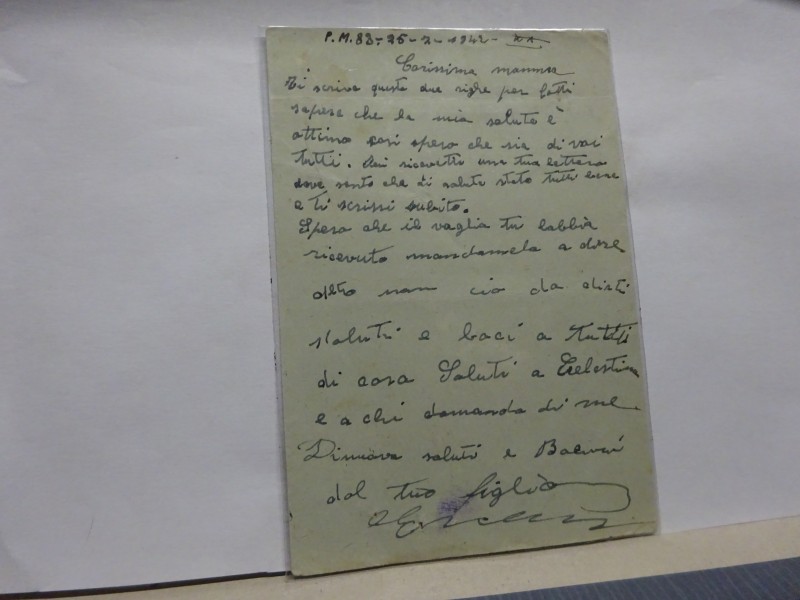 P.M. 83 - 25 - 2 - 1942 - XX
Carissima mamma
Ti scrivo queste due righe per farti
sapere che la mia salute è
ottima cosi spero che sia di voi
tutti. Oui ricevetti una tua lettera
dove sento che di salute state tutti bene
e ti scrissi subito.
Spero che il vaglia tu labbia
ricevuto mandamela a dire
altro non cio da dirti
saluti e baci a tutti
di casa Saluti a Celestina
e a chi domanda di me
Dinuovo saluti e Bacioni
dal tuo figlio